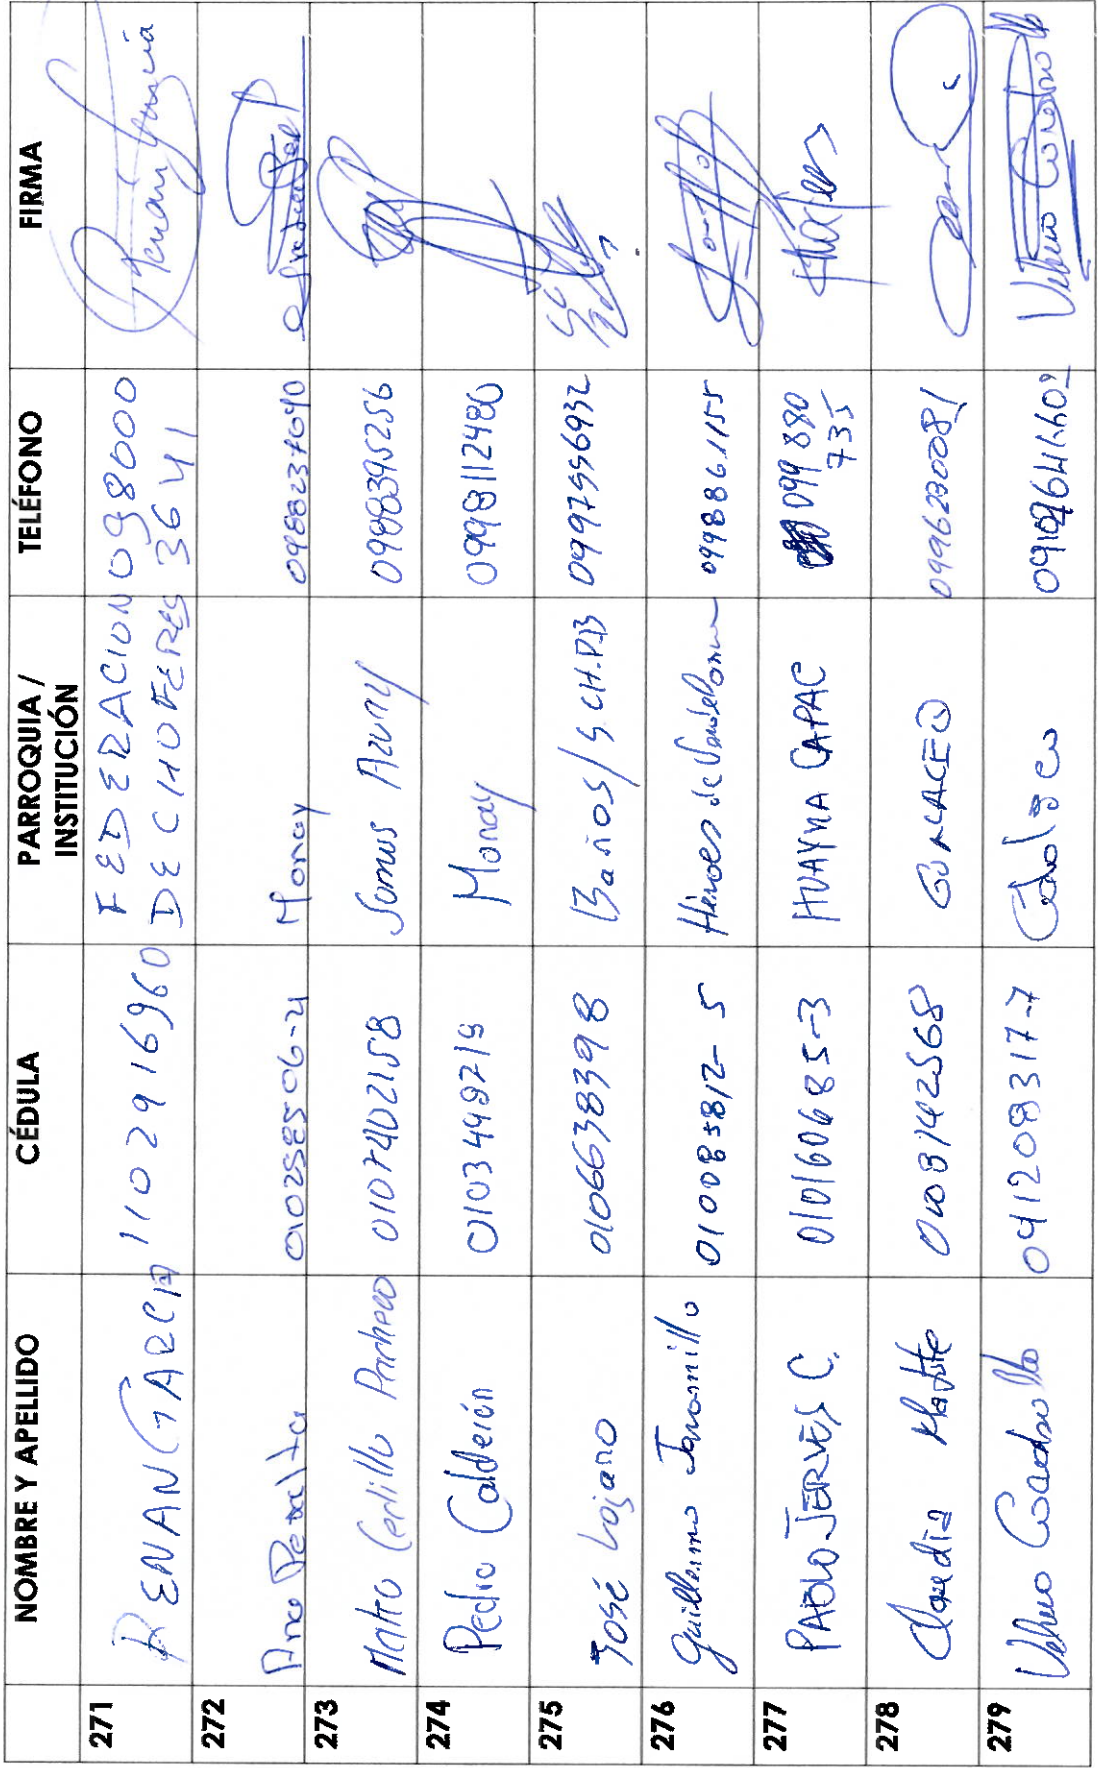 NOMBRE Y APELLIDO CÉDULA PARROQUIA / INSTITUCIÓN TELÉFONO FIRMA
271 RENAN GARCIA 1102916960 FEDERACION DE CHOFERES 098000 3641 Renan Garcia
272 Peralta 010258506-4 Monay 0988237690
273 Carlillo Pacheco 0107402158 Somos Azuay 0988395256
274 Pedro Calderón 0103449219 Monay 0998112480
275 José Lojano 0106638398 Baños / S.CH.P.B 0997556932
276 Guillermo Jaramillo 010085812-5 Héroes de 0998861155
277 PABLO JERVES C. 010160685-3 HUAYNA CAPAC 099 880 735
278 Claudia 0108142568 GUALACEO 0996230081
279 091208317-7